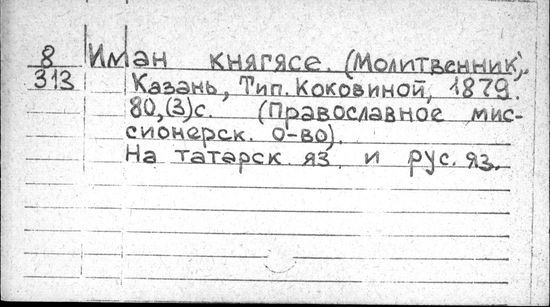 8
313
Иман княгясе. (Молитвенник).
Казань, Тип. Коковиной, 1879.
80,(3)с. (Православное мис-
сионерск. о-во).
На татарск. яз. и рус. яз.